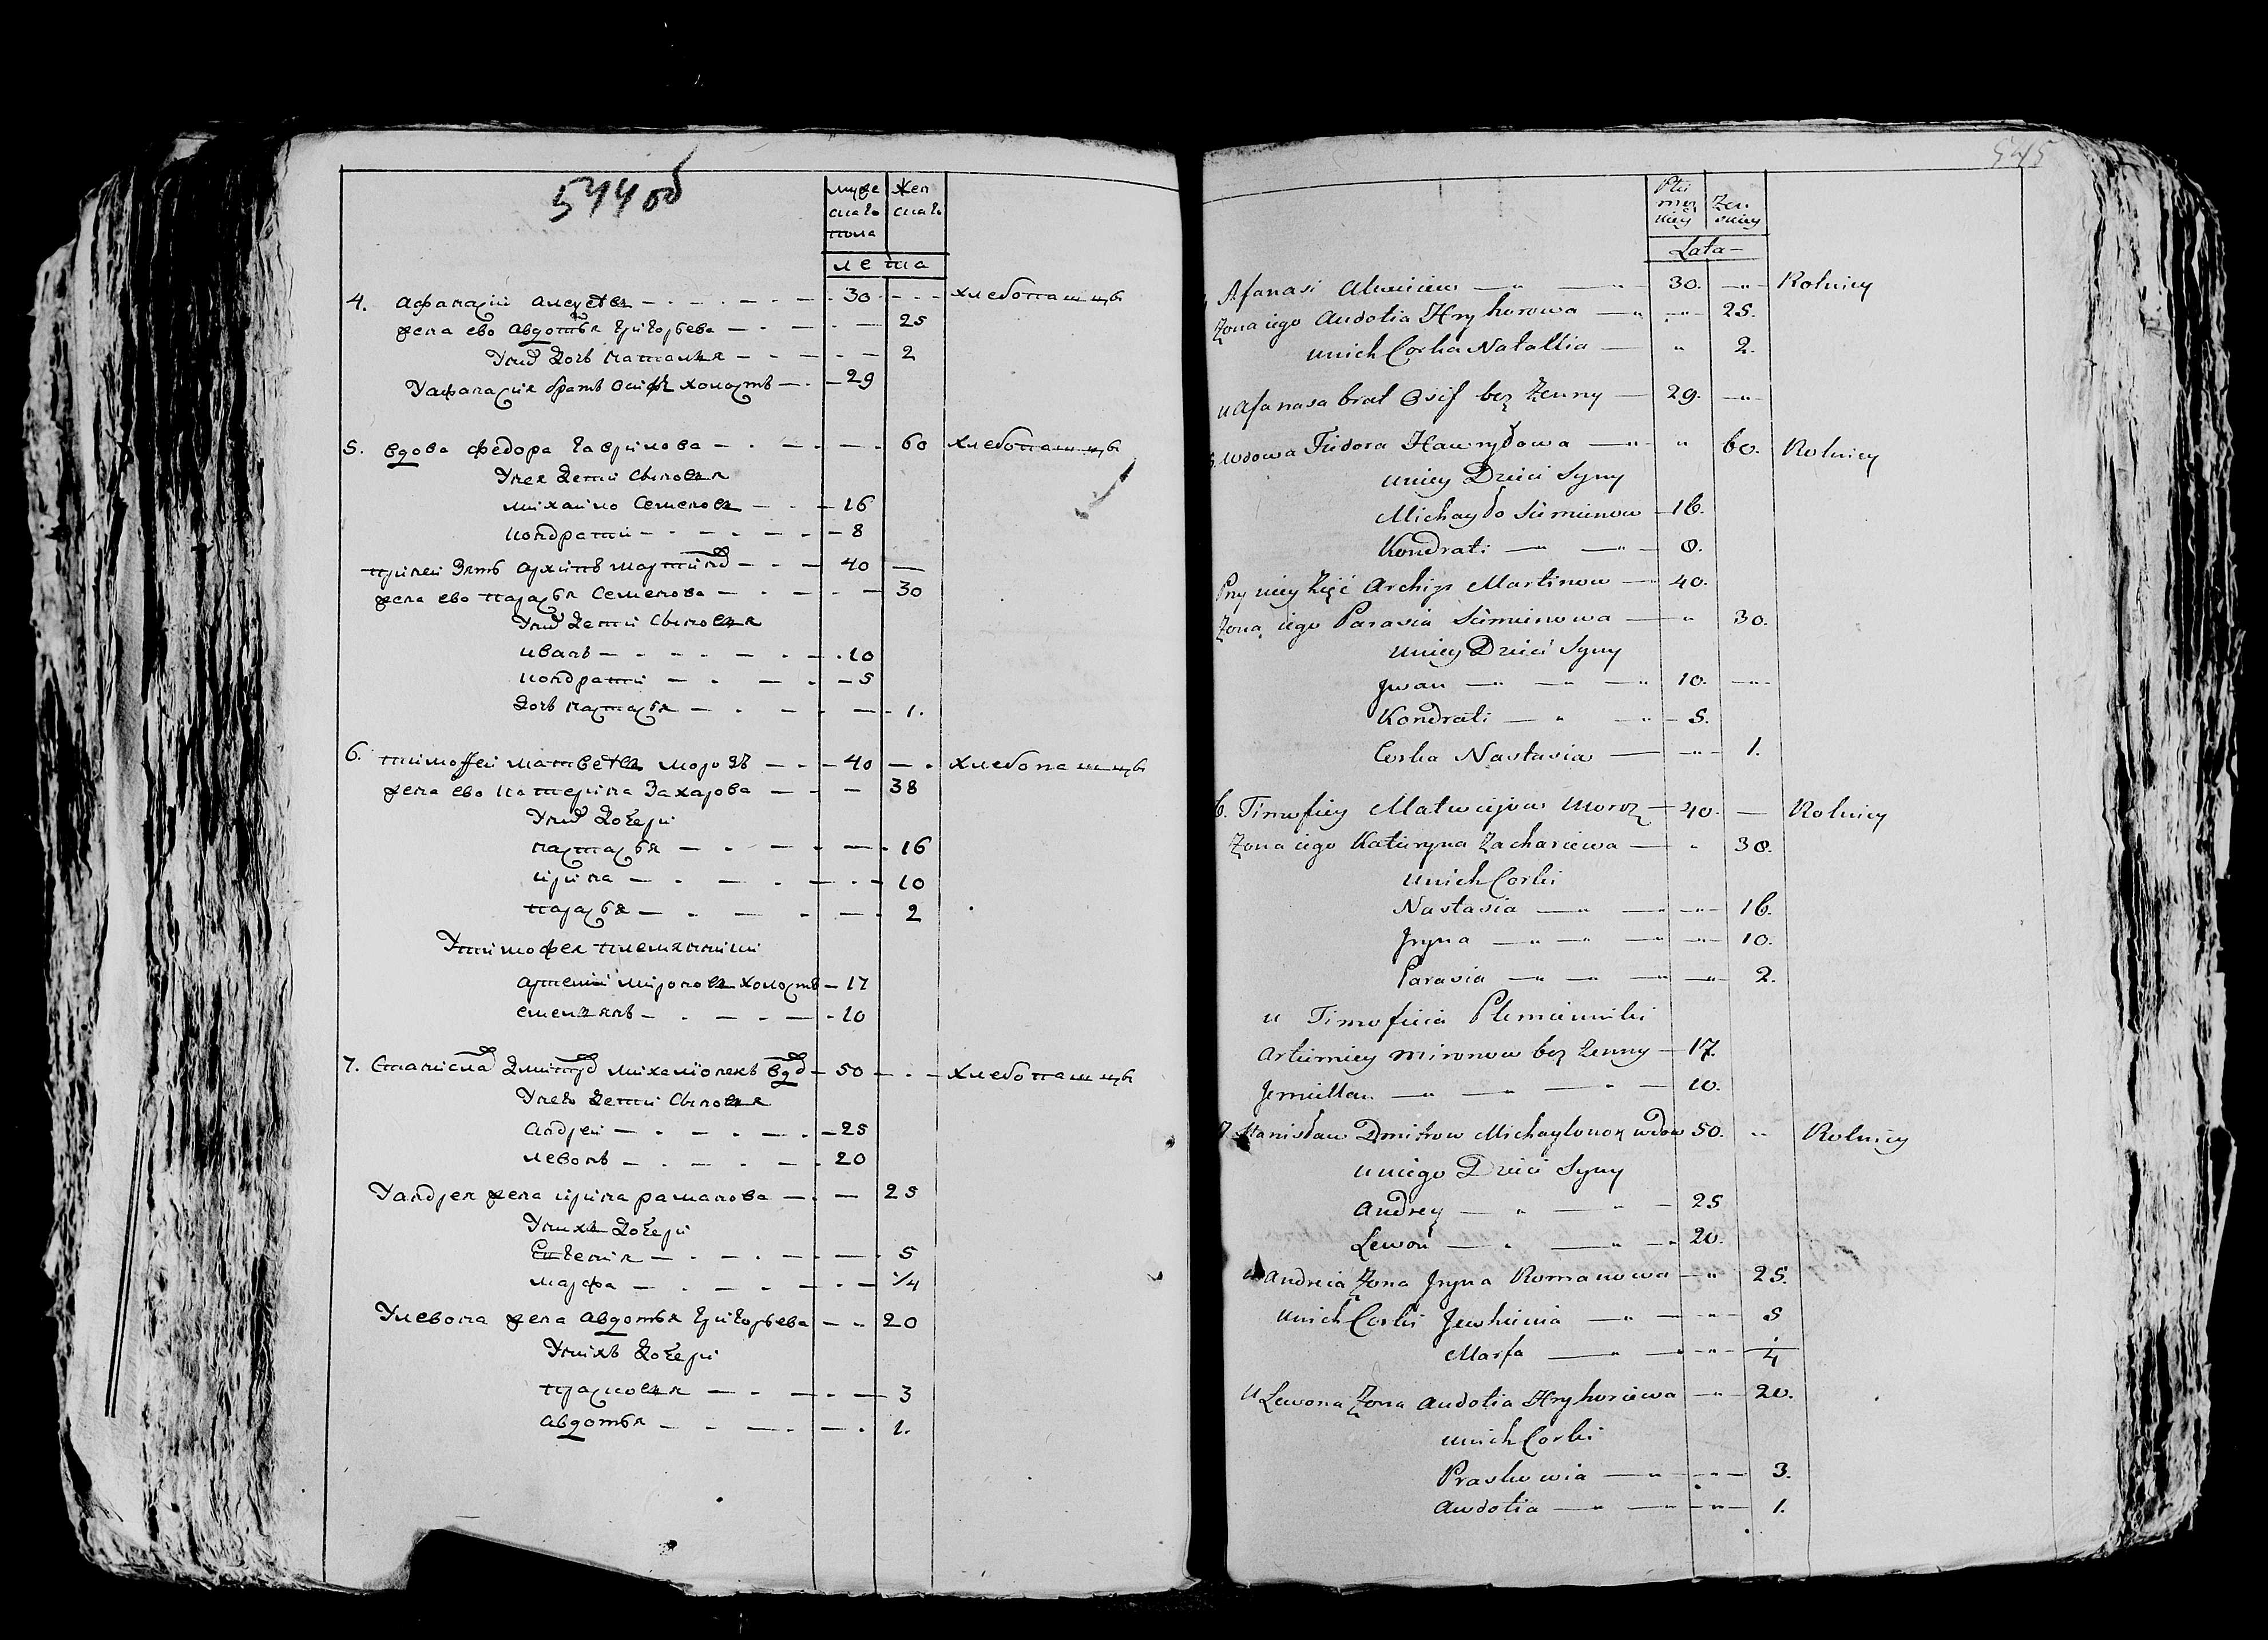 544 об
муже
скаго
пола
жен
скаго
лета
4. Афанасии Алексеевъ 30 хлебопашцы
жена ево Авдотья Григорьева 25
У них дочь Наталья 2
У Афанасия братъ Осифъ холостъ 29
5. Вдова Федора Гаврилова 60 хлебопашцы
У нея дети сыновья
Михаило Семеновъ 16
Кондрати 8
При ней зять Архипъ Мартинов 40
жена ево Парасья Семенова 30
У них дети сыновья
Иванъ 10
Кондрати 5
дочь Настасья 1.
6. Тимоффеи Матвеевъ Морозъ 40 хлебопашцы
жена ево Катерина Захарова 38
У них дочери
Настасья 16
Ирина 10
Парасья 2
У Тимофея племянники
Артемии Мироновъ холостъ 17
Емельянъ 10
7. Станислав Дмитров Михаилонекъ вдов 50 хлебопашцы
У него дети сыновья
Андреи 25
Левонъ 20
У Андрея жена Ирина Раманова 25
У нихъ дочери
Евгения 5
Марфа 1/4
У Левона жена Авдотья Григорьева 20
У нихъ дочери
Прасковья 3
Авдотья 1.
545
Płci
męz
kiey
Żen
skiey
Lata
Afanasi 30. Rolnicy
Żona iego Audotia Hryhorowa 25.
u nich Corka Natallia 2.
u Afanasa brat Osif bez Żenny 29.
5. wdowa Fiedora Hawryłowa 60. Rolnicy
u niey Dzieci Syny
Michayło Siemienow 16.
Kondrati 8.
Przy niey Zięć Archip Martinow 40.
Żona iego Parasia Siemienowa 30.
u niey Dzieci Syny
Jwan 10.
Kondrati 5.
Corka Nastasia 1.
6. Timofiey Matwiejow Moroz 40. Rolnicy
Żona iego Katieryna Zachariewa 38.
u nich Corki
Nastasia 16.
Jryna 10.
Parasia 2.
u Timofieia Plemienniki
Artiemiey Mironow bez żenny 17.
Jemiellan 10.
7 Stanisław Dmitrow Michaylonok wdow 50. Rolnicy
u niego Dzieci Syny
Andrey 25
Lewon 20.
u Andreia Żona Jryna Romanowa 25.
u nich Corki Jewhienia 5
Marfa 1/4
u Lewona Żona Audotia Hryhoriewa 20.
u nich Corki
Praskowia 3.
Awdotia 1.